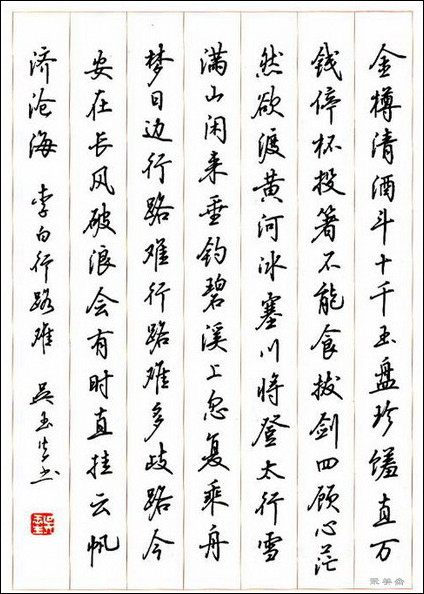 金樽清酒斗十千玉盘珍馐直万
钱停杯投箸不能食拔剑四顾心茫
然欲渡黄河冰塞川将登太行雪
满山闲来垂钓碧溪上忽复乘舟
梦日边行路难行路难多歧路今
安在长风破浪会有时直挂云帆
济沧海 李白行路难 吴玉生书